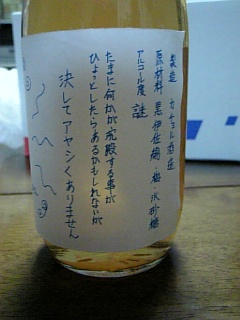 製造
原材料 黒伊佐錦・梅・氷砂糖
アルコール度 謎
たまに何かが沈殿する事が
ひょっとしたらあるかもしれないが
決してアヤシくありません